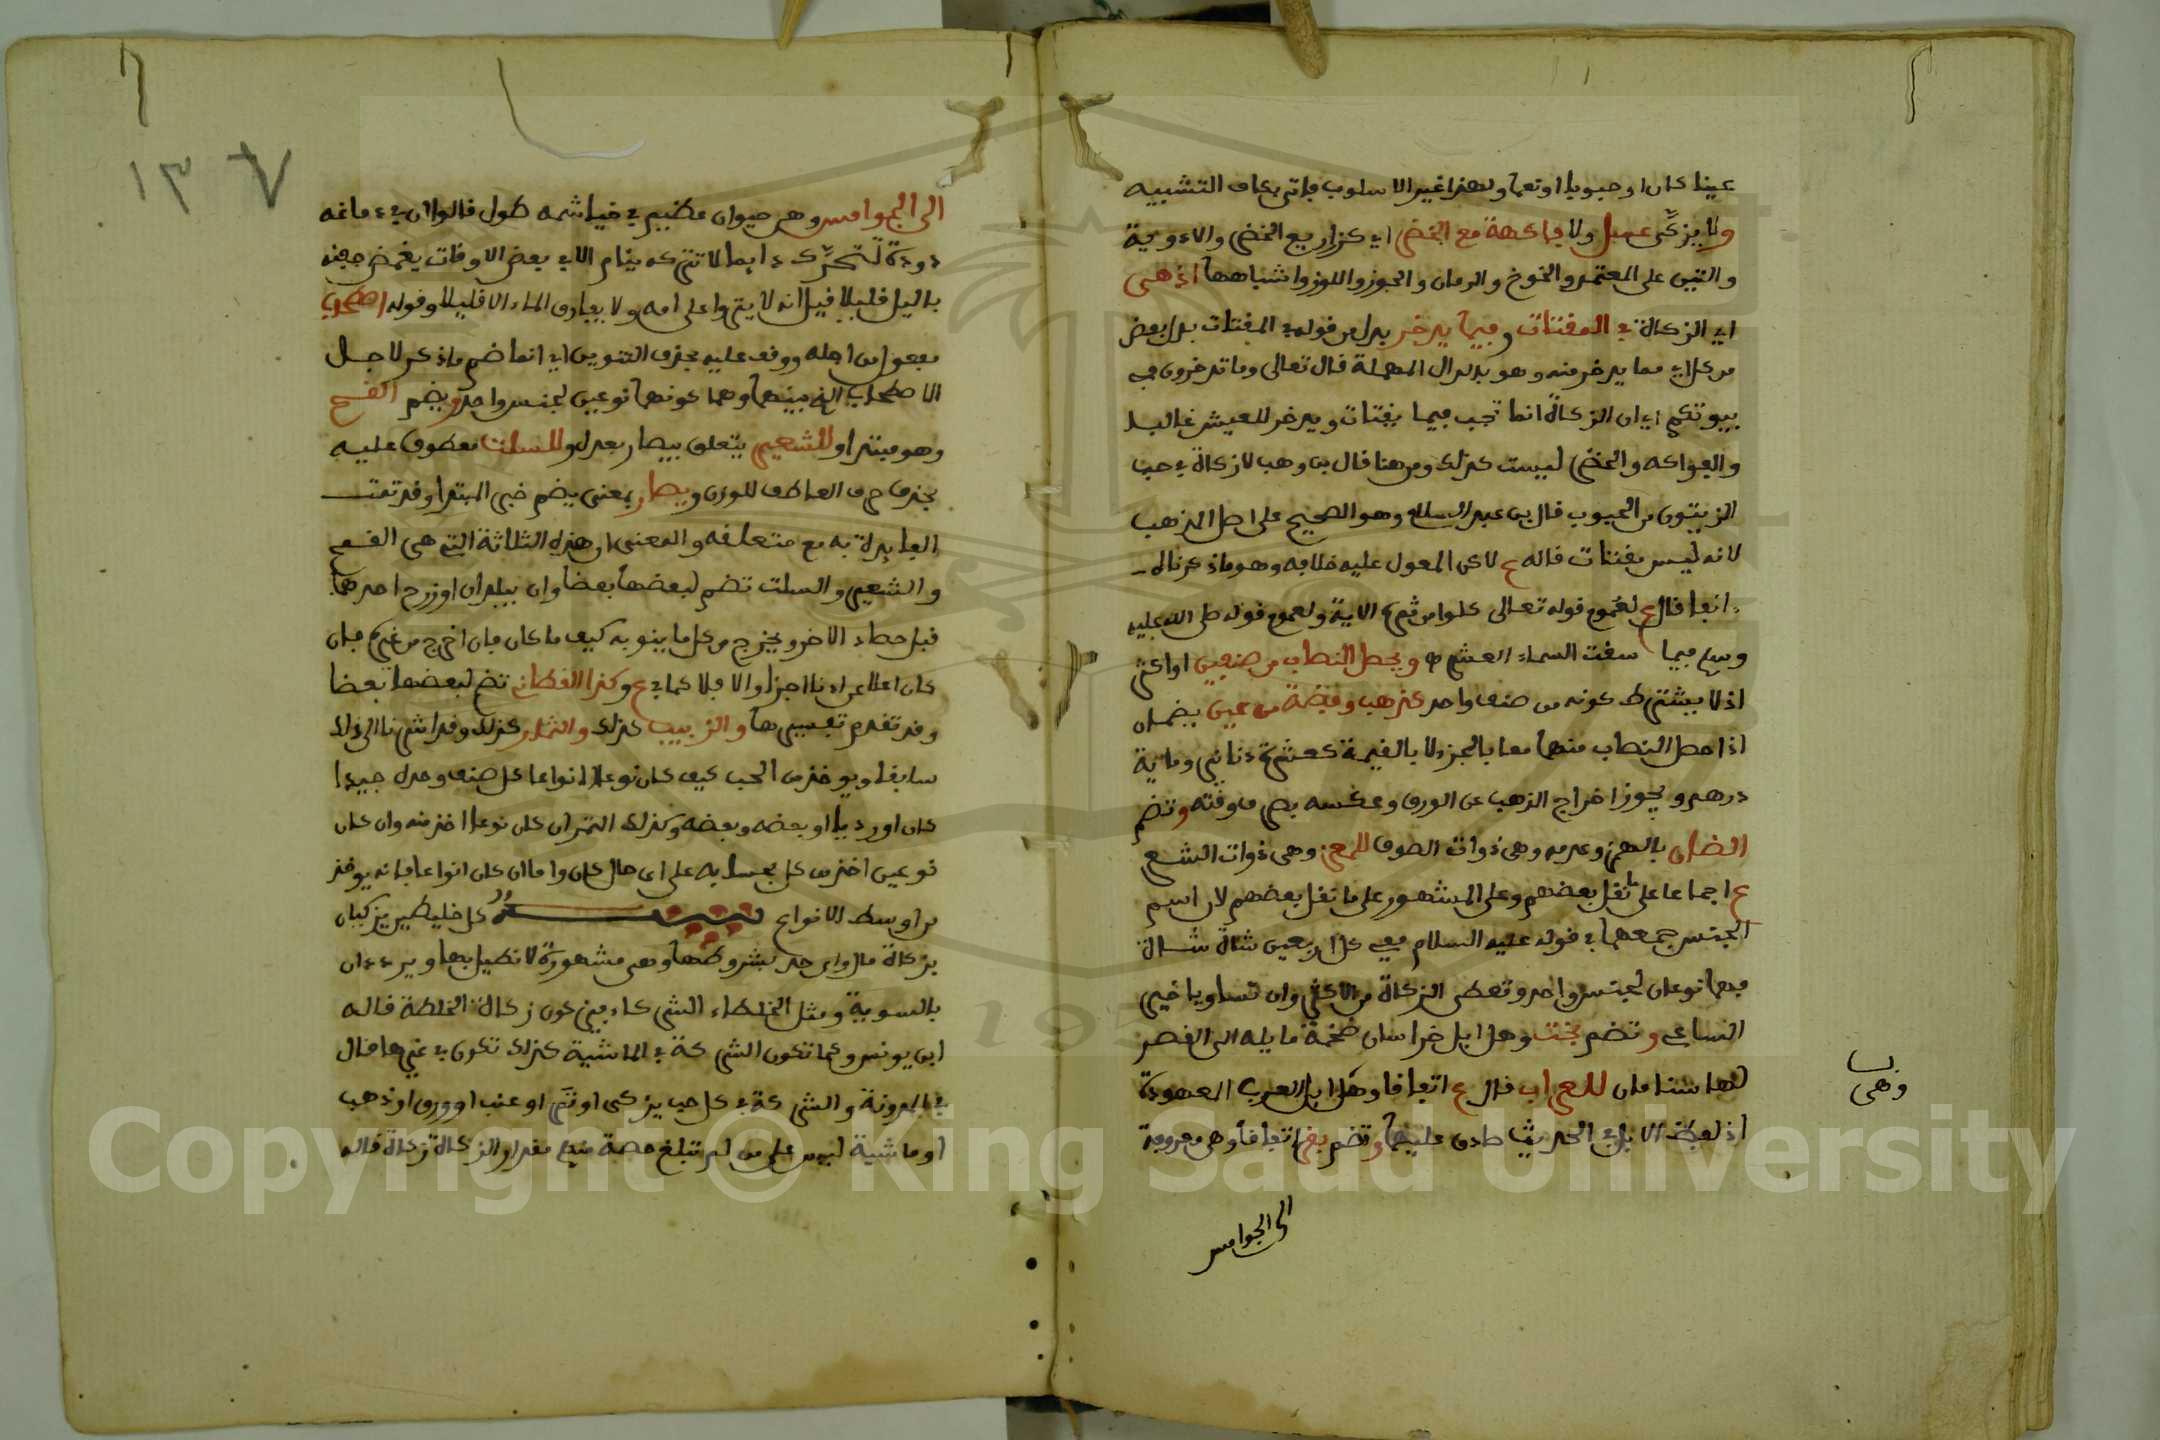 عينا كان او حبوبا او نعما ولهذا غير الاسلوب فاتى بكاف التشبيه
ولا يزكى عسل ولا فاكهة مع الخضر اي كزاريع الخضر والادوية
والتين على المعتمد والخوخ والرمان والجوز واللوز واشباهها اذ هى
اي الزكاة في المقتات وفيما يدخر بدل من قوله في المقتات بدل بعض
من كل اي مما يدخر منه وهو بالدال المهملة قال تعالى وما تدخرون في
بيوتكم اي ان الزكاة انما تجب فيما يقتات ويدخر للعيش غالبا
والفواكه والخضر ليست كذلك ومن هنا قال بن وهب لا زكاة في حب
الزيتون من الحبوب قال بن عبد السلام وهو الصحيح على اصل المذهب
لانه ليس بمقتات قاله ع لاكن المعول عليه خلافه وهو ما ذكرناه
انفا قال ع لعموم قوله تعالى كلوا من ثمره الاية ولعموم قوله صلى الله عليه
وسلم فيما سقت السماء العشر ويحصل النصاب من صنفين او اكثر
اذ لا يشترط كونه من صنف واحد كذهب وفضة من عين يضمان
اذا حصل النصاب منهما معا بالجزء لا بالقيمة كعشرة دنانير وماية
درهم ويجوز اخراج الذهب عن الورق وعكسه بصرف وقته وتضم
الضان بالهمز وعدمه وهى ذوات الصوف للمعز وهى ذوات الشعر
ع اجماعا على ما نقل بعضهم وعلى المشهور على ما نقل بعضهم لان اسم
الجنس جمعهما في قوله عليه السلام في كل اربعين شاة شاة
فهما نوعان لجنس واحد وتعطى الزكاة من الاكثر وان تساويا خير
الساعى وتضم بخت وهى ابل خراسان ضخمة مايلة الى القصر
لها سنامان للعراب قال ع اتفاقا وهى ابل العرب المعهودة
اذ لفظ الابل في الحديث صادق عليهما وتضم بقر اتفاقا وهى معروفة
وهى
الى الجوامس
١٣٧
الى الجوامس وهى حيوان عظيم في خياشمه طول قالوا ان في دماغه
دودة تتحرك دايما لا تتركه ينام الا في بعض الاوقات يغمض جفنه
باليل قليلا قيل انه لا ينزوا على امه ولا يفارق الماء الا قليلا وقوله اصطحاب
مفعول من اجله ووقف عليه بحذف التنوين اي انما ضم ما ذكر لاجل
الاصطحاب الذي بينهما وهما كونهما نوعين لجنس واحد ويضم القمح
وهو مبتدا وللشعير يتعلق بيصار بعد وللسلت معطوف عليه
بحذف حرف العاطف للوزن ويصار بمعنى يضم خبر المبتدا وقد تمت
الفايدة به مع متعلقه والمعنى ان هذه الثلاثة التي هى القمح
والشعير والسلت تضم لبعضها بعضا وان ببلدان ان زرع احدها
قبل حصاد الاخر ويخرج من كل ما ينوبه كيف ما كان فان اخرج من غيره فان
كان اعلا عن ادنا اجزا والا فلا كما في ع وكذا القطانى تضم لبعضها بعضا
وقد تقدم تفسيرها والزبيب كذلك والثمار كذلك وقد اشرنا الى ذلك
سابقا ويوخذ من الحب كيف كان نوعا او انواعا كل صنف وحده جيدا
كان او رديا او بعضه وبعضه وكذلك التمر ان كان نوعا اخذ منه وان كان
نوعين اخذ من كل بحسابه على اي حال كان واما ان كان انواعا فانه يوخذ
من اوسط الانواع كل خليطين يزكيان
بزكاة مال واحد بشروطها وهى مشهورة لا نطيل بها ويردان
بالسوية ومثل الخلطاء الشركاء فيزكون زكاة الخلطة قاله
ابن يونس وكما تكون الشركة في الماشية كذلك تكون في غيرها قال
في المدونة والشركة في كل حب يزكى او تمر او عنب او ورق او ذهب
او ماشية ليس على من لم تبلغ حصة منهم مقدار الزكاة زكاة قاله
Copyright © King Saud University